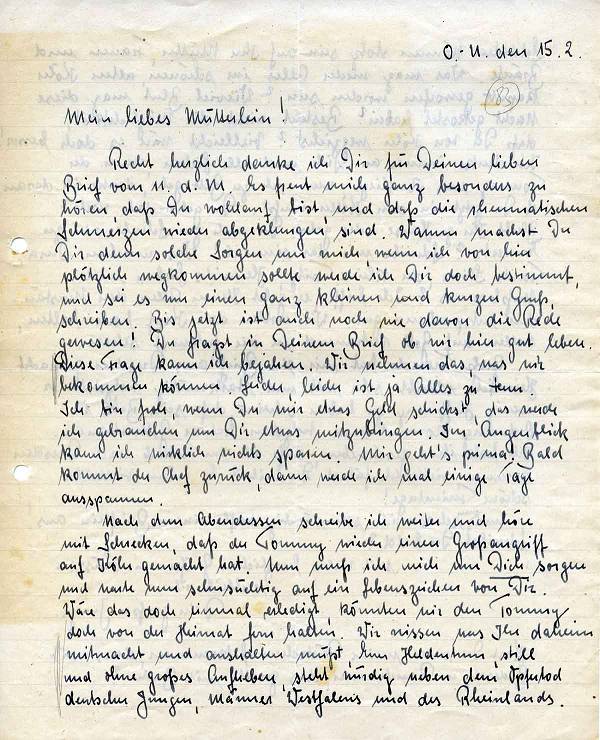 O.-U. den 15.2.
Mein liebes Mütterlein!
Recht herzlich danke ich Dir für Deinen lieben
Brief vom 11. d. M. Es freut mich ganz besonders zu
hören, daß Du wohlauf bist und daß die rheumatischen
Schmerzen wieder abgeklungen sind. Warum machst Du
Dir denn solche Sorgen um mich, wenn ich von hier
plötzlich wegkommen sollte werde ich Dir doch bestimmt,
und sei es nur einen ganz kleinen und kurzen Gruß,
schreiben. Bis jetzt ist auch noch nie davon die Rede
gewesen! Du fragst in Deinem Brief ob wir hier gut leben.
Diese Frage kann ich bejahen. Wir nehmen das, was wir
bekommen können. Leider, leider ist ja Alles zu teuer.
Ich bin froh wenn Du mir etwas Geld schickst, das werde
ich gebrauchen um Dir etwas mitzubringen. Im Augenblick
kann ich wirklich nichts sparen. Mir geht's prima! Bald
kommt der Chef zurück, dann werde ich mal einige Tage
ausspannen.
Nach dem Abendessen schreibe ich weiter und höre
mit Schrecken, daß der Tommy wieder einen Großangriff
auf Köln gemacht hat. Nun muß ich mich um Dich sorgen
und warte nun sehnsüchtig auf ein Lebenszeichen von Dir.
Wäre das doch einmal erledigt, könnten wir den Tommy
doch von der Heimat fern halten. Wir wissen was Ihr daheim
mitmacht und aushalten müßt. Euer Heldentum, still
und ohne großes Aufheben, steht würdig neben dem Opfertod
deutscher Jungen, Männer Westfalens und des Rheinlands.